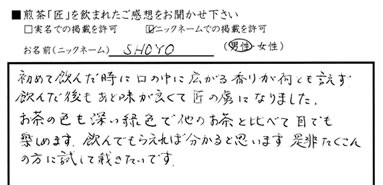 ■煎茶「匠」を飲まれたご感想をお聞かせ下さい
□実名での掲載を許可 ☑ニックネームでの掲載を許可
お名前(ニックネーム) SHOYO (男性・女性)
初めて飲んだ時に口の中に広がる香りが何とも言えず
飲んだ後もあと味が良くて匠の虜になりました。
お茶の色も深い緑色で他のお茶と比べて目でも
楽しめます。飲んでもらえれば分かると思います是非たくさん
の方に試して戴きたいです。